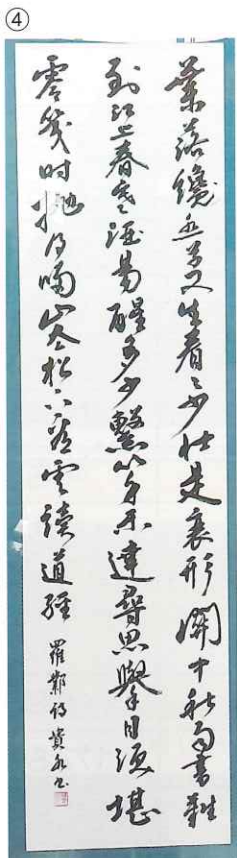 ④
葉落纔悲草又生看々少壯是衰形關中秋雨書難
到渭上春寒酒易醒多少繫心身未達尋思舉目淚堪
零幾時抛得歸山去松下看雲讀道經 羅鄴詩